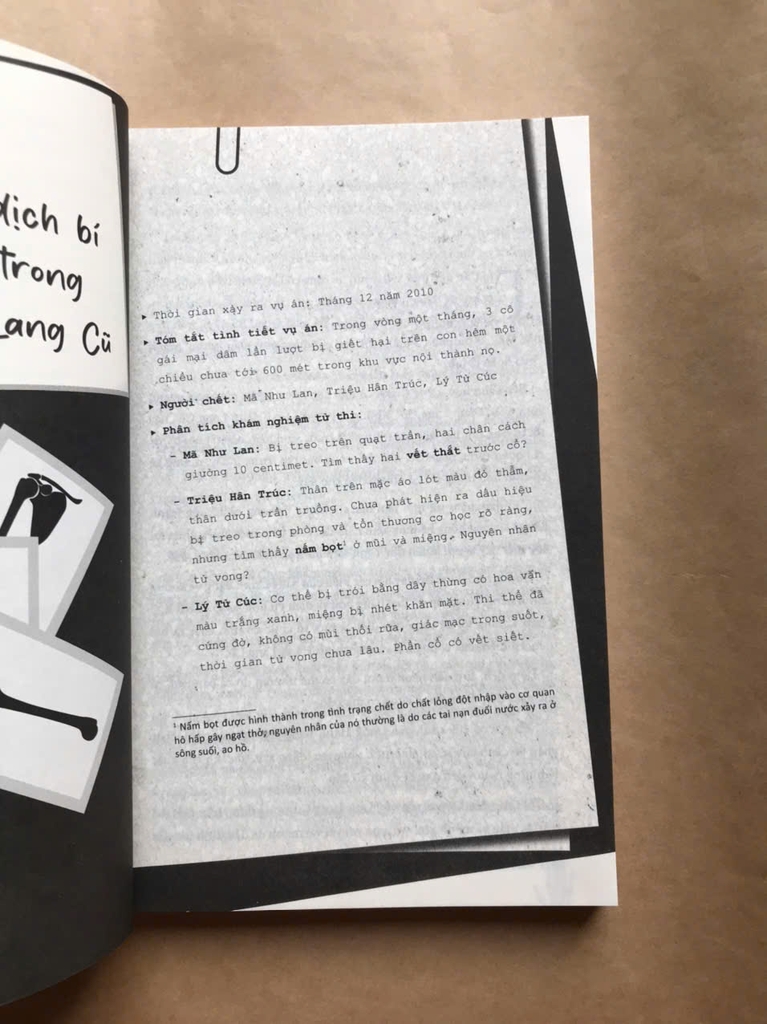 dịch bí
trong
Lang Cũ
▸ Thời gian xảy ra vụ án: Tháng 12 năm 2010
▸ Tóm tắt tình tiết vụ án: Trong vòng một tháng, 3 cô
gái mại dâm lần lượt bị giết hại trên con hẻm một
chiều chưa tới 600 mét trong khu vực nội thành nọ.
▸ Người chết: Mã Như Lan, Triệu Hân Trúc, Lý Tử Cúc
▸ Phân tích khám nghiệm tử thi:
– Mã Như Lan: Bị treo trên quạt trần, hai chân cách
giường 10 centimet. Tìm thấy hai vết thắt trước cổ?
– Triệu Hân Trúc: Thân trên mặc áo lót màu đỏ thẫm,
thân dưới trần truồng. Chưa phát hiện ra dấu hiệu
bị treo trong phòng và tổn thương cơ học rõ ràng,
nhưng tìm thấy nấm bọt¹ ở mũi và miệng. Nguyên nhân
tử vong?
– Lý Tử Cúc: Cơ thể bị trói bằng dây thừng có hoa văn
màu trắng xanh, miệng bị nhét khăn mặt. Thi thể đã
cứng đờ, không có mùi thối rữa, giác mạc trong suốt,
thời gian tử vong chưa lâu. Phần cổ có vết siết.
¹ Nấm bọt được hình thành trong tình trạng chết do chất lỏng đột nhập vào cơ quan
hô hấp gây ngạt thở, nguyên nhân của nó thường là do các tai nạn đuối nước xảy ra ở
sông suối, ao hồ.